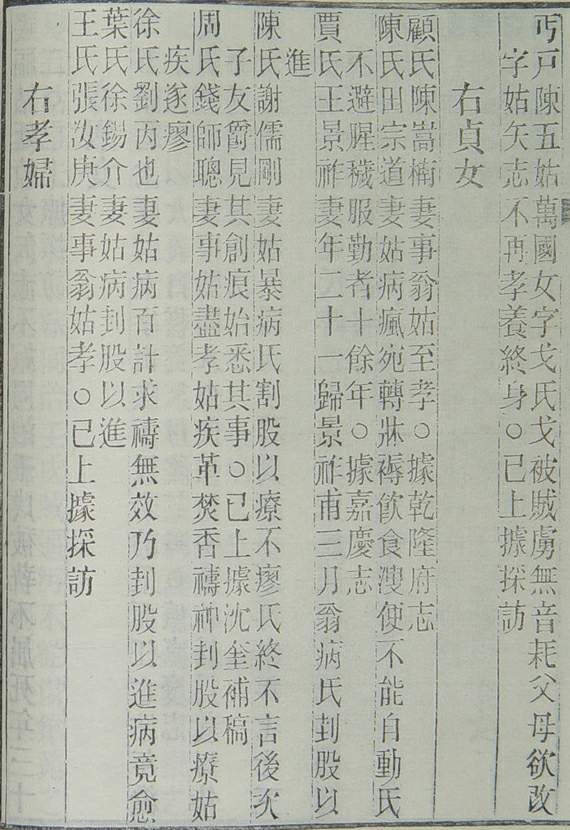 丐戸陳五姑萬國女字戈氏戈被賊虜無音耗父母欲改
字姑矢志不再孝養終身○已上據採訪
右貞女
顧氏陳嵩楠妻事翁姑至孝○據乾隆府志
陳氏田宗道妻姑病瘋宛轉牀褥飲食溲便不能自動氏
不避腥穢服勤者十餘年○據嘉慶志
賈氏王景祚妻年二十一歸景祚甫三月翁病氏刲股以
進
陳氏謝儒剛妻姑暴病氏割股以療不瘳氏終不言後次
子友爵見其創痕始悉其事○已上據沈奎補稿
周氏錢師聰妻事姑盡孝姑疾革焚香禱神刲股以療姑
疾遂瘳
徐氏劉丙也妻姑病百計求禱無效乃刲股以進病竟愈
葉氏徐錫介妻姑病刲股以進
王氏張汝庚妻事翁姑孝○已上據採訪
右孝婦